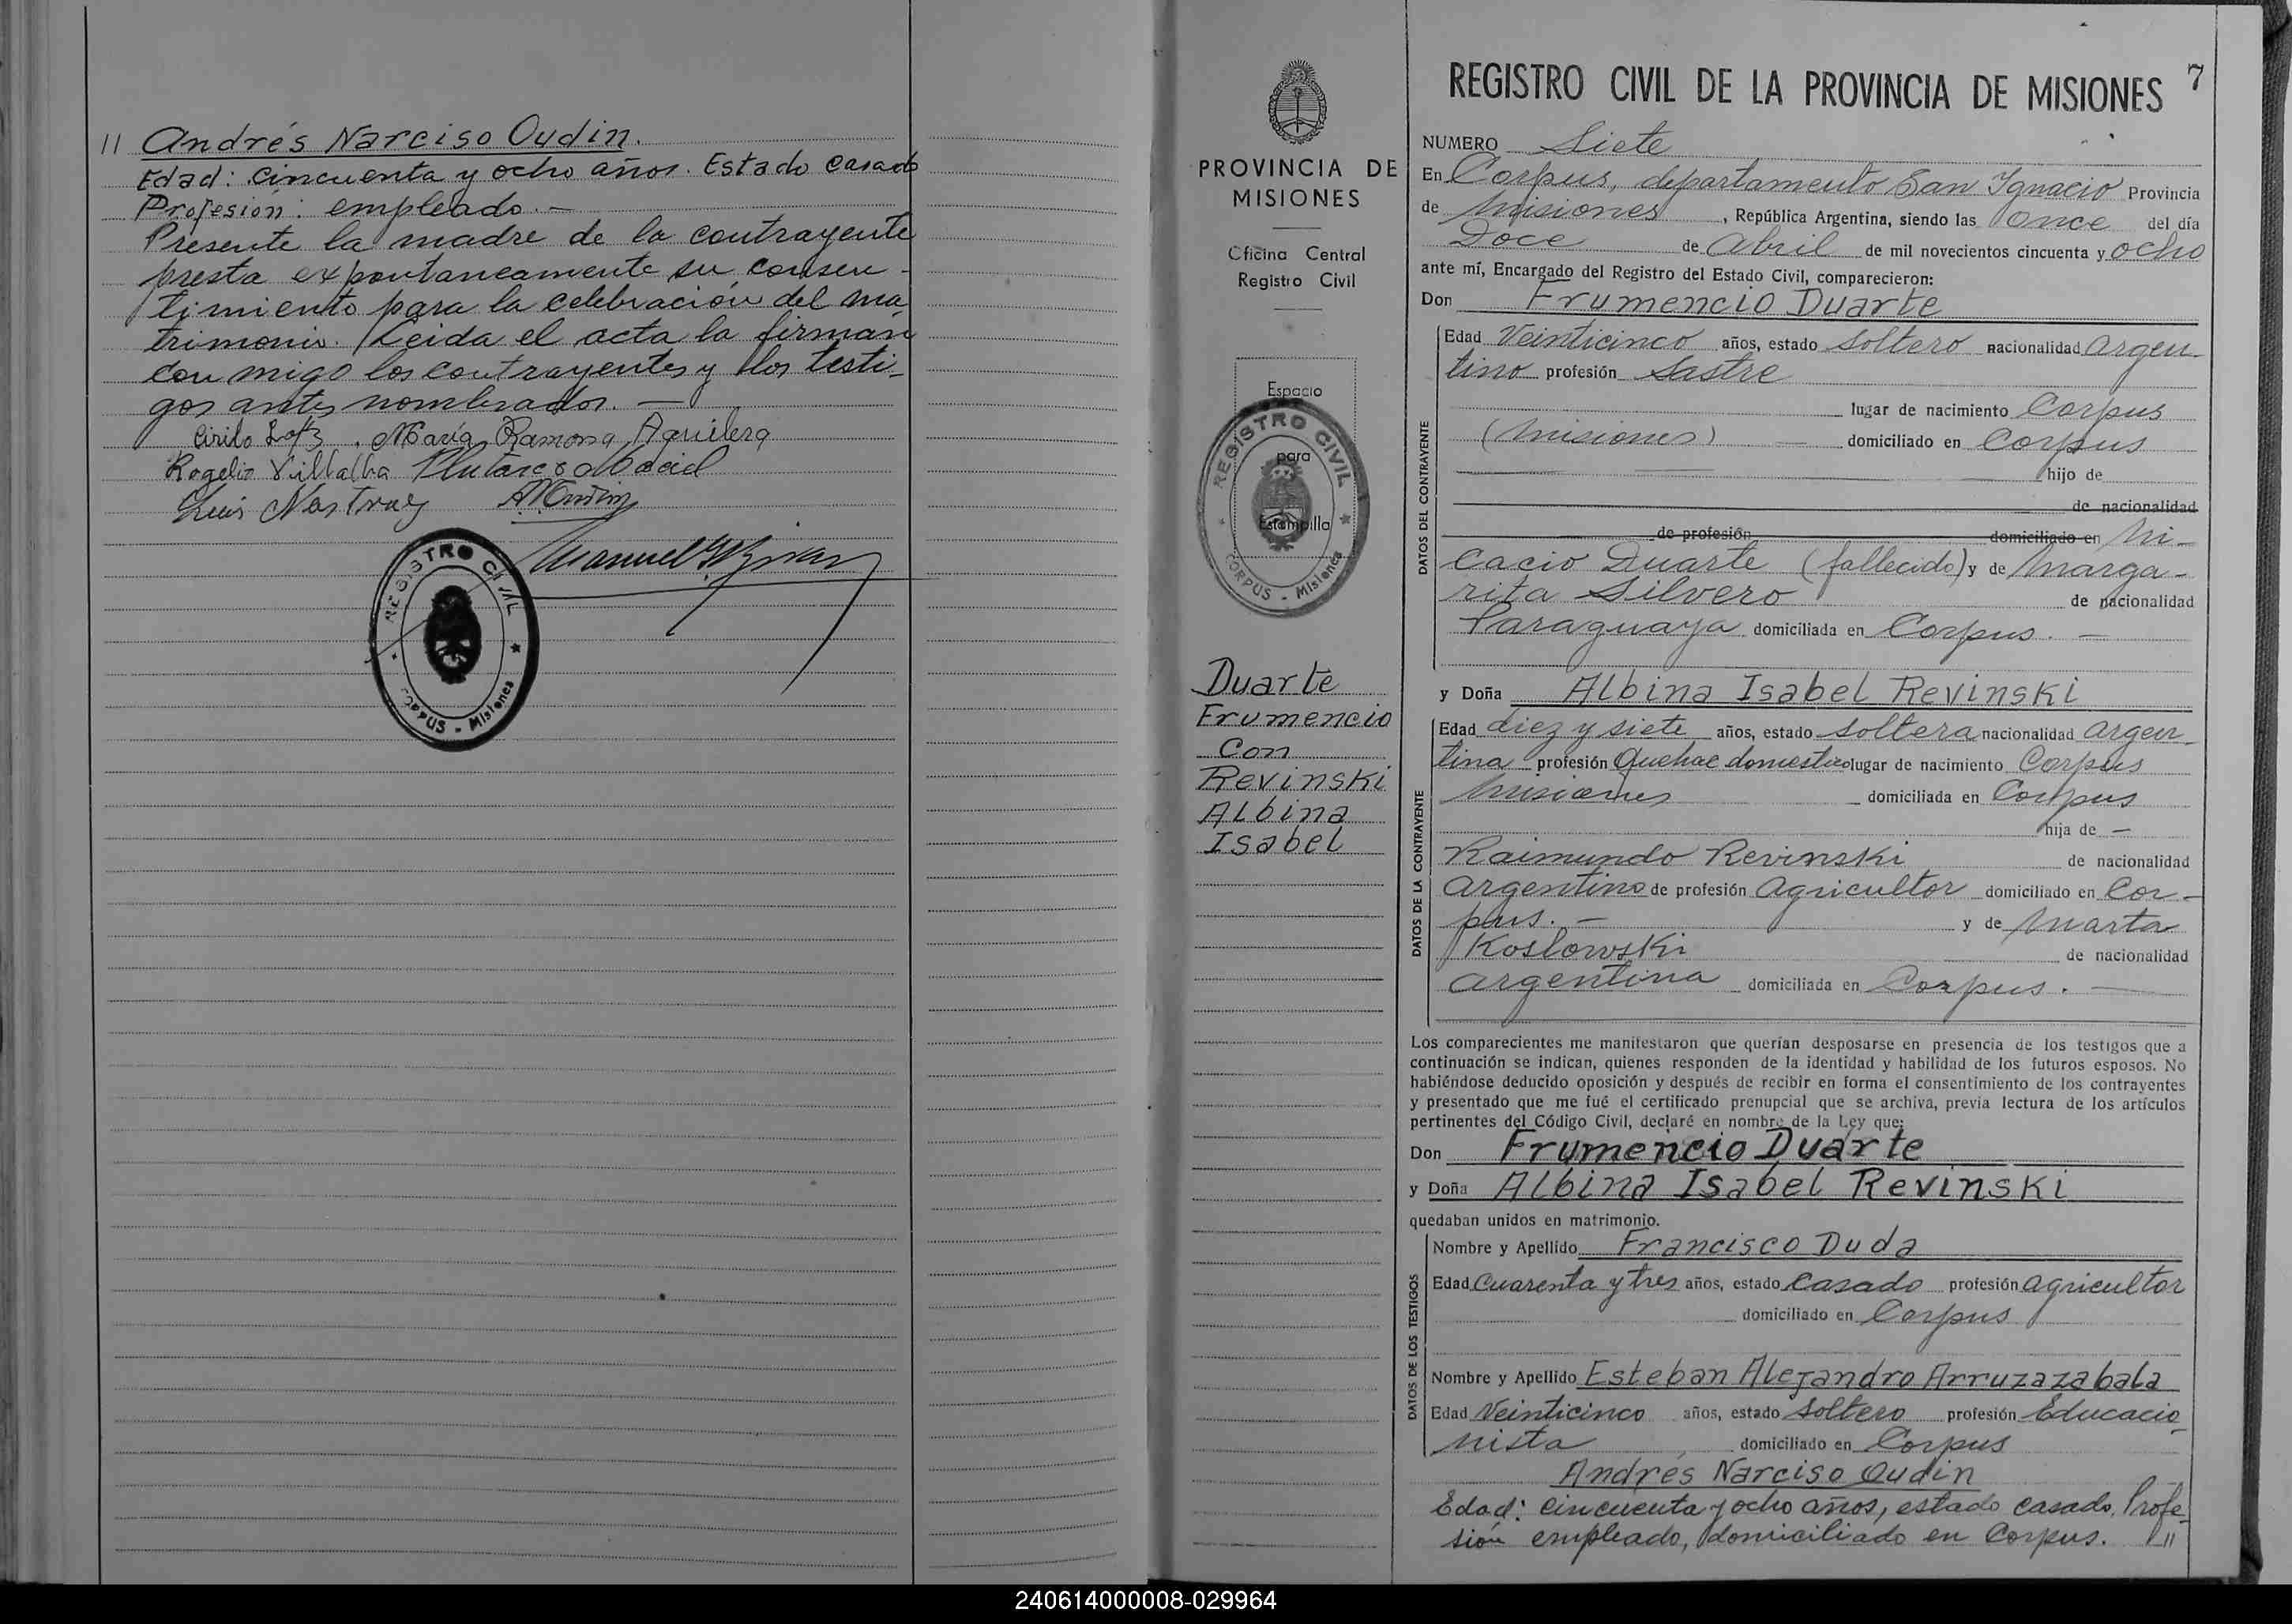 11 Andrés Narciso Oudin.
Edad: Cincuenta y ocho años. Estado casado
Profesión: empleado. —
Presente la madre de la contrayente
presta expontaneamente su consen-
timiento para la celebración del ma-
trimonio. Leida el acta la firman
con migo los contrayentes y los testi-
gos antes nombrados. —
Cirilo . María Ramona Aguilera
Rogelio Villalba Plutarco Maciel
Luis
Manuel
REGISTRO CIVIL
CORPUS - Misiones
PROVINCIA DE
MISIONES
Oficina Central
Registro Civil
Espacio
para
Estampilla
REGISTRO CIVIL
CORPUS - Misiones
Duarte
Frumencio
Con
Revinski
Albina
Isabel
REGISTRO CIVIL DE LA PROVINCIA DE MISIONES 7
NUMERO Siete
En Corpus, departamento San Ignacio Provincia
de Misiones, República Argentina, siendo las Once del día
Doce de Abril de mil novecientos cincuenta y ocho
ante mí, Encargado del Registro del Estado Civil, comparecieron:
Don Frumencio Duarte
DATOS DEL CONTRAYENTE
Edad Veinticinco años, estado Soltero nacionalidad argen-
tino profesión Sastre
lugar de nacimiento Corpus
(Misiones) — domiciliado en Corpus
hijo de
de nacionalidad
de profesión domiciliado en Ni-
cacio Duarte (fallecido) y de Marga-
rita Silvero de nacionalidad
Paraguaya domiciliada en Corpus. —
y Doña Albina Isabel Revinski
DATOS DE LA CONTRAYENTE
Edad diez y siete años, estado soltera nacionalidad argen-
tina profesión Quehac domestico lugar de nacimiento Corpus
Misiones domiciliada en Corpus
hija de —
Raimundo Revinski de nacionalidad
argentino de profesión Agricultor domiciliado en Cor-
pus. — y de Marta
Koslowski de nacionalidad
argentina domiciliada en Corpus. —
Los comparecientes me manifestaron que querían desposarse en presencia de los testigos que a
continuación se indican, quienes responden de la identidad y habilidad de los futuros esposos. No
habiéndose deducido oposición y después de recibir en forma el consentimiento de los contrayentes
y presentado que me fué el certificado prenupcial que se archiva, previa lectura de los artículos
pertinentes del Código Civil, declaré en nombre de la Ley que:
Don Frumencio Duarte
y Doña Albina Isabel Revinski
quedaban unidos en matrimonio.
DATOS DE LOS TESTIGOS
Nombre y Apellido Francisco Duda
Edad Cuarenta y tres años, estado Casado profesión agricultor
domiciliado en Corpus
Nombre y Apellido Esteban Alejandro Arruzazabala
Edad Veinticinco años, estado Soltero profesión Educacio-
nista domiciliado en Corpus
Andrés Narciso Oudin
Edad: cincuenta y ocho años, estado casado, Profe-
sión empleado, domiciliado en Corpus. 11
240614000008-029964